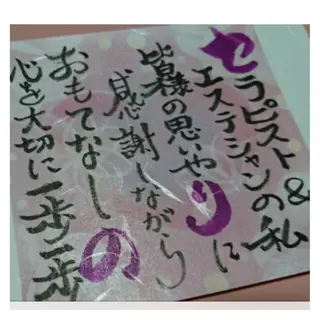 セラピスト&
エステシャンの私
皆様の思いやりに
感謝しながら
おもてなしの
心を大切に一歩一歩